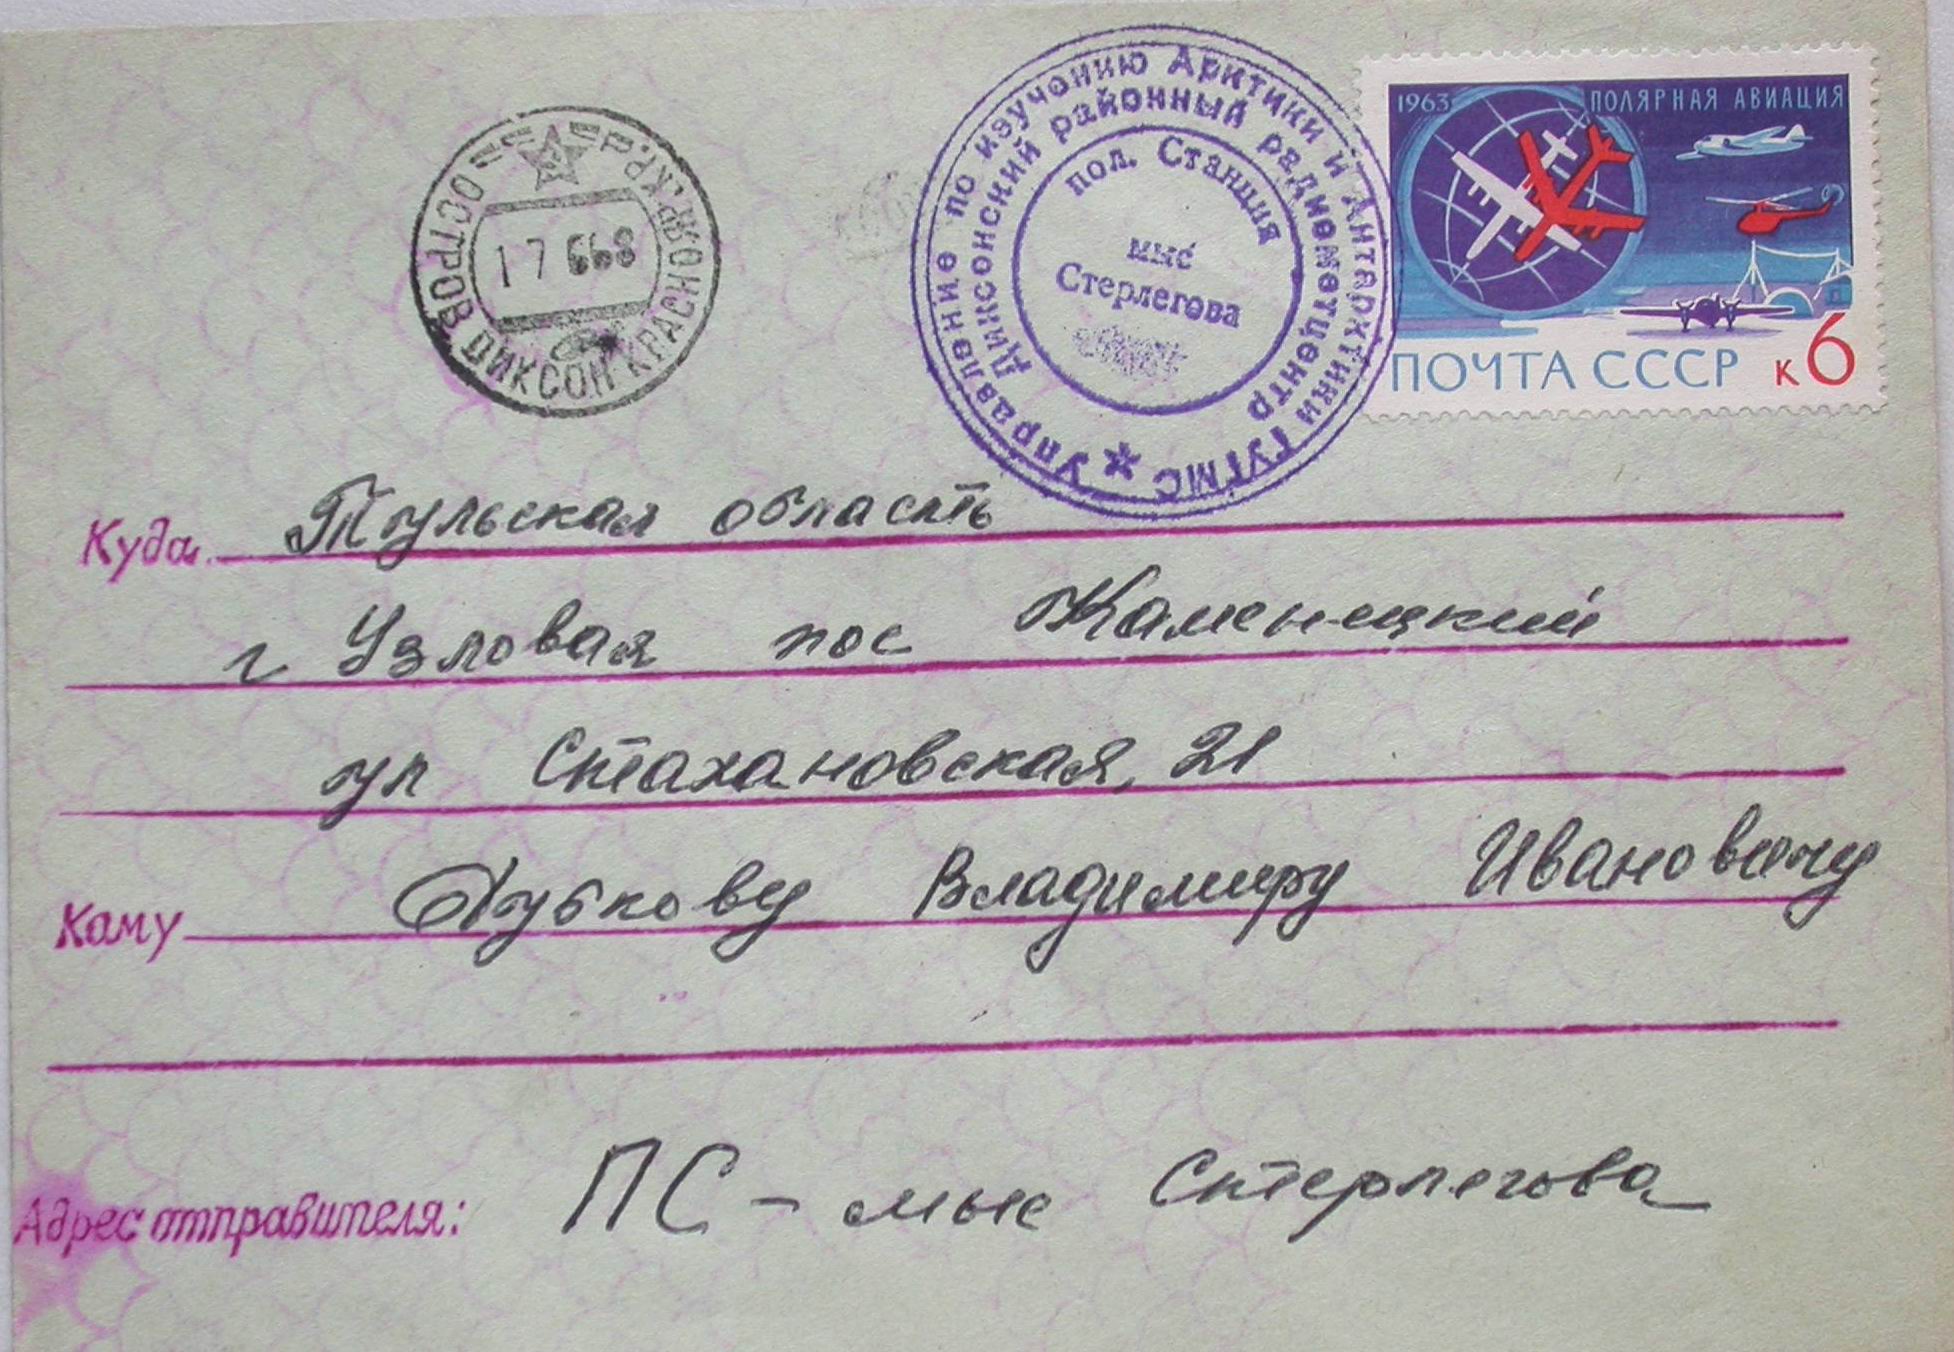 ОСТРОВ ДИКСОН КРАСНОЯР. КР.
17 6 68
Управление по изучению Арктики и Антарктики ГУГМС
Диксонский районный радиометцентр
пол. Станция
мыс
Стерлегова
1963 ПОЛЯРНАЯ АВИАЦИЯ
ПОЧТА СССР к 6
Куда Тульская область
г Узловая пос Каменецкий
ул Стахановская, 21
Кому Дубкову Владимиру Ивановичу
Адрес отправителя: ПС - мыс Стерлегова